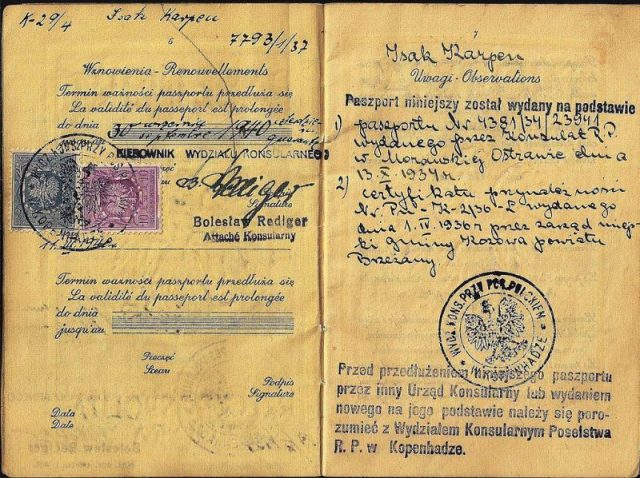 K-29/4 Isak Karpen
6
7793/1/37
Wznowienia - Renouvellements
Termin ważności paszportu przedłuża się
La validité du passeport est prolongée
do dnia 30 września 1940
septembre
KIEROWNIK WYDZIAŁU KONSULARNEGO
B. Rediger
Signature
Bolesław Rediger
Attaché Konsularny
Termin ważności paszportu przedłuża się
La validité du passeport est prolongée
do dnia
jusqu'au
Pieczęć
Sceau
Podpis
Signature
Data
Date
7
Isak Karpen
Uwagi - Observations
Paszport niniejszy został wydany na podstawie
1) paszportu Nr. 4381/34/23941
wydanego przez Konsulat R.P.
w Morawskiej Ostrawie dnia
13.X 1934r.
2) certyfikatu przynależności
wydanego
dnia 1.IV 1936r przez zarząd miej-
ski gminy Kozowa powiatu
Brzeżany.
WYDZ. KONS. PRZY POS. POLSKIEM
W KOPENHADZE
Przed przedłużeniem niniejszego paszportu
przez inny Urząd Konsularny lub wydaniem
nowego na jego podstawie należy się poro-
zumieć z Wydziałem Konsularnym Poselstwa
R. P. w Kopenhadze.